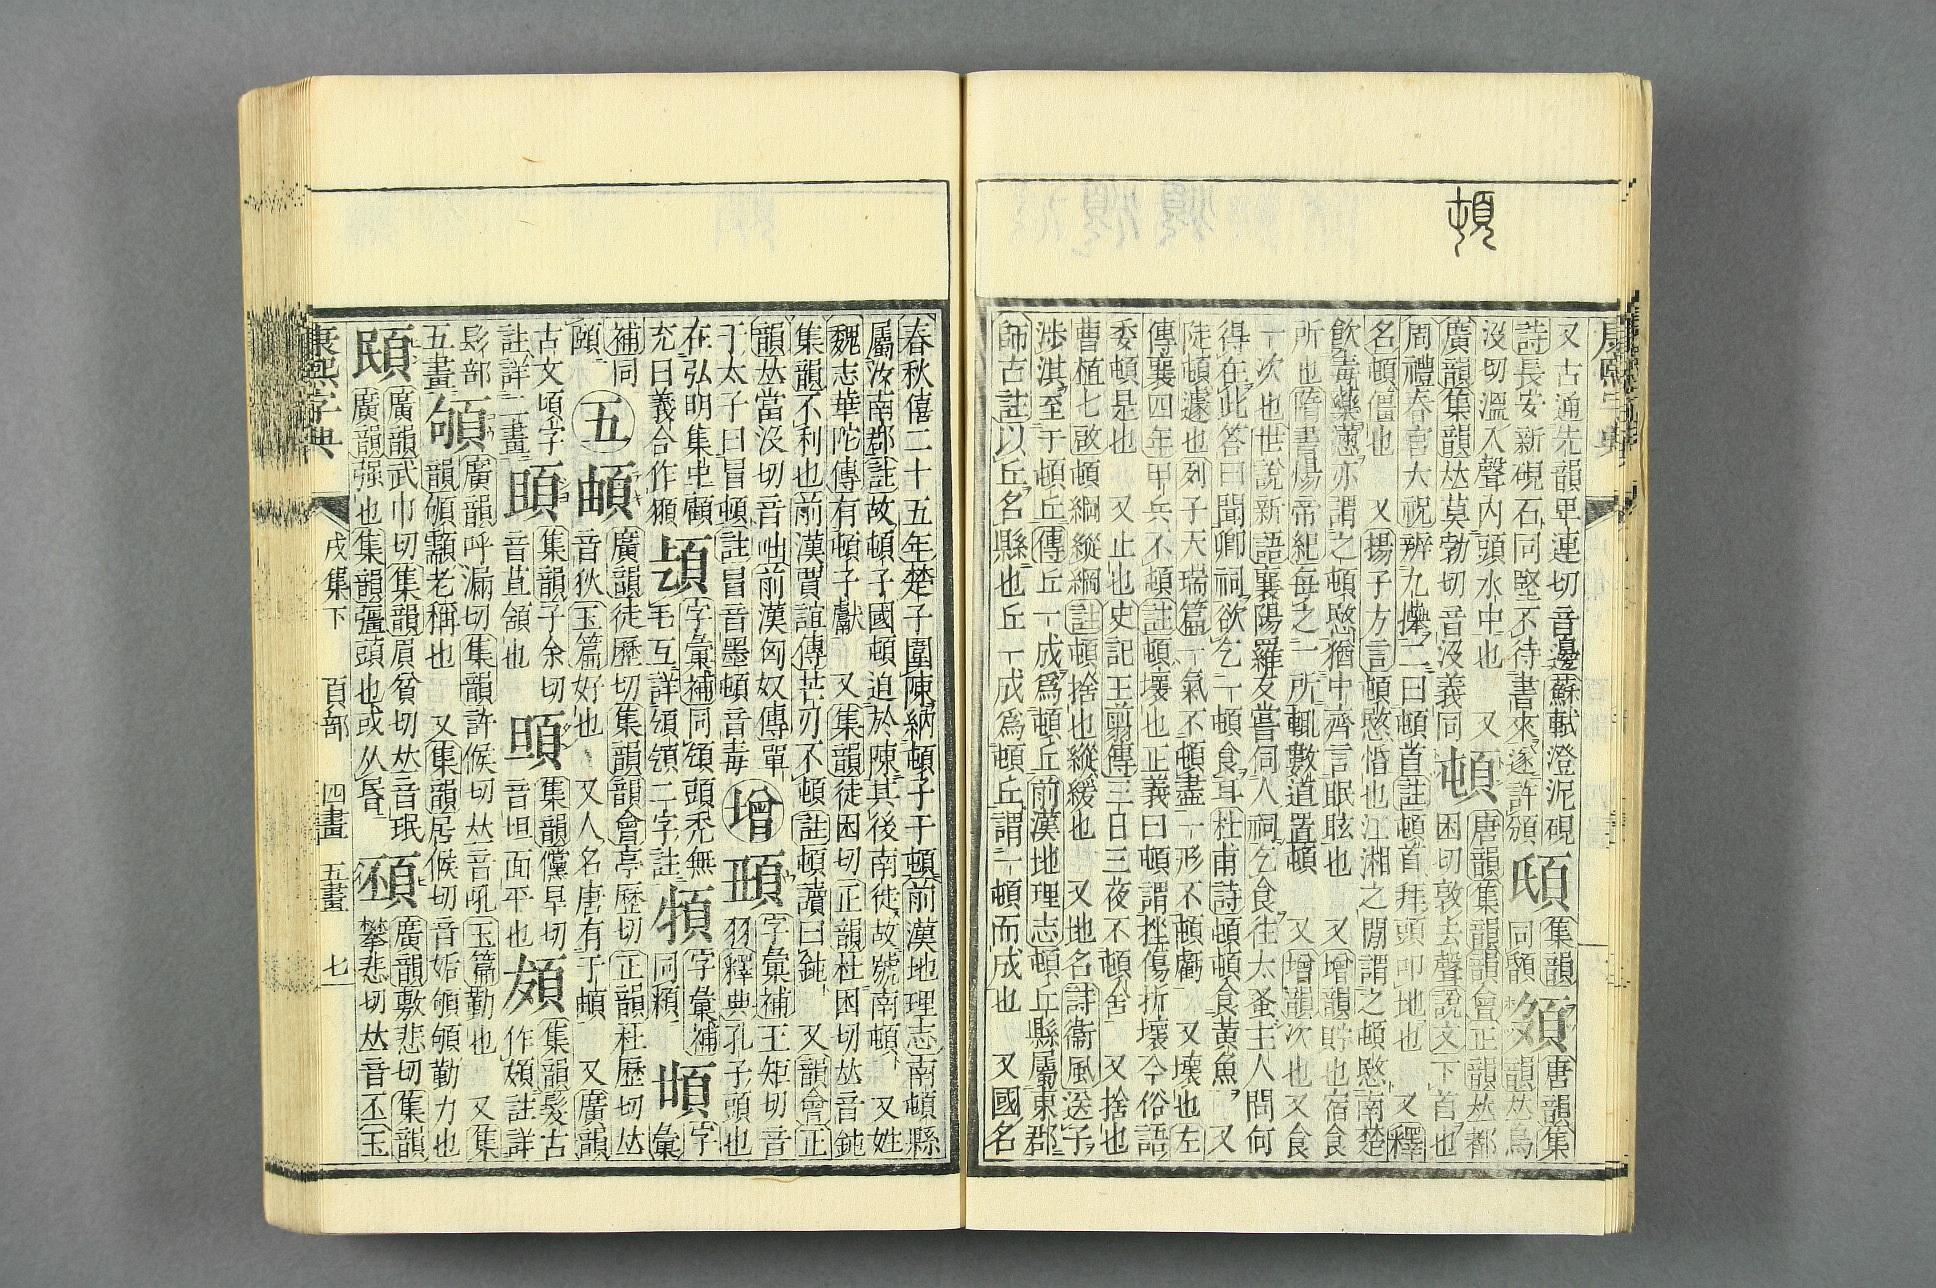 頓
又古通先韻𤰞連切音邊蘇軾澄泥硯
詩長安新硯石同堅不待書來遂許頒
同顋
韻𠀤烏
沒切溫入聲內頭水中也 又
唐韻集韻韻會正韻𠀤都
廣韻集韻𠀤莫勃切音沒義同 頓 困切敦去聲說文下首也
周禮春官大祝辨九㩜二曰頓首註頓首拜頭叩地也 又釋
名頓僵也 又揚子方言頓愍惛也江湘之閒謂之頓愍南楚
飮毒藥懣亦謂之頓愍猶中齊言眠眩也 又增韻貯也宿食
所也隋書煬帝紀每之一所輒數道置頓 又增韻次也又食
一次也世說新語襄陽羅友嘗伺人祠乞食往太蚤主人問何
得在此答曰聞卿祠欲乞一頓食耳杜甫詩頓頓食黃魚 又
陡頓遽也列子天瑞篇一氣不頓盡一形不頓虧 又壞也左
傳襄四年甲兵不頓註頓壞也正義曰頓謂挫傷折壞今俗語
委頓是也 又止也史記王翦傳三日三夜不頓舍 又捨也
曹植七啟頓綱縱綱註頓捨也縱緩也 又地名詩衞風送子
涉淇至于頓丘傳丘一成爲頓丘前漢地理志頓丘縣屬東郡
師古註以丘名縣也丘一成爲頓丘謂一頓而成也 又國名
春秋僖二十五年楚子圍陳納頓子于頓前漢地理志南頓縣
屬汝南郡註故頓子國頓迫於陳其後南徙故號南頓 又姓
魏志華陀傳有頓子獻 又集韻徒困切正韻杜困切𠀤音鈍
集韻不利也前漢賈誼傳芒刃不頓註頓讀曰鈍 又韻會正
韻𠀤當沒切音咄前漢匈奴傳單
于太子曰冒頓註冒音墨頓音毒 增
字彙補王矩切音
羽釋典孔子頭也
在弘明集㞢顧
充曰義合作顨
字彙補同頌頭禿無
毛互詳頌頒二字註
字彙補
同顂
字彙
補同
頤 五 頔 廣韻徒歷切集韻韻會亭歷切正韻杜歷切𠀤
音狄玉篇好也 又人名唐有于頔 又廣韻
古文頃字
註詳二畫
集韻子余切
音苴頟也
集韻儻旱切
音坦面平也
集韻髮古
作頫註詳
髟部
五畫
廣韻呼漏切集韻許候切𠀤音吼玉篇勤也 又集
韻䪷䫔老稱也 又集韻居候切音姤䪷䪷勤力也
廣韻武巾切集韻眉貧切𠀤音珉
廣韻强也集韻彊頭也或从昬
廣韻敷悲切集韻
攀悲切𠀤音丕玉
康熙字典 戌集下 頁部 四畫 五畫 七